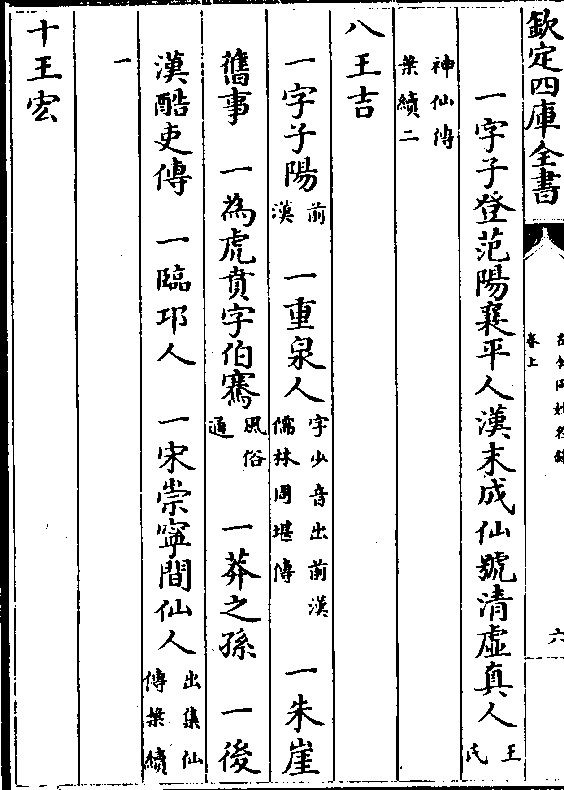 欽定四庫全書
卷上
六
一字子登范陽襄平人漢末成仙號清虛真人王氏
神仙傳
葉續二
八王吉
一字子陽前漢　一重泉人字少音出前漢儒林周堪傳　一朱崖
舊事　一為虎賁字伯騫風俗通　一莽之孫　一後
漢酷吏傳　一臨邛人　一宋崇寧間仙人出集仙傳葉續
一
十王宏